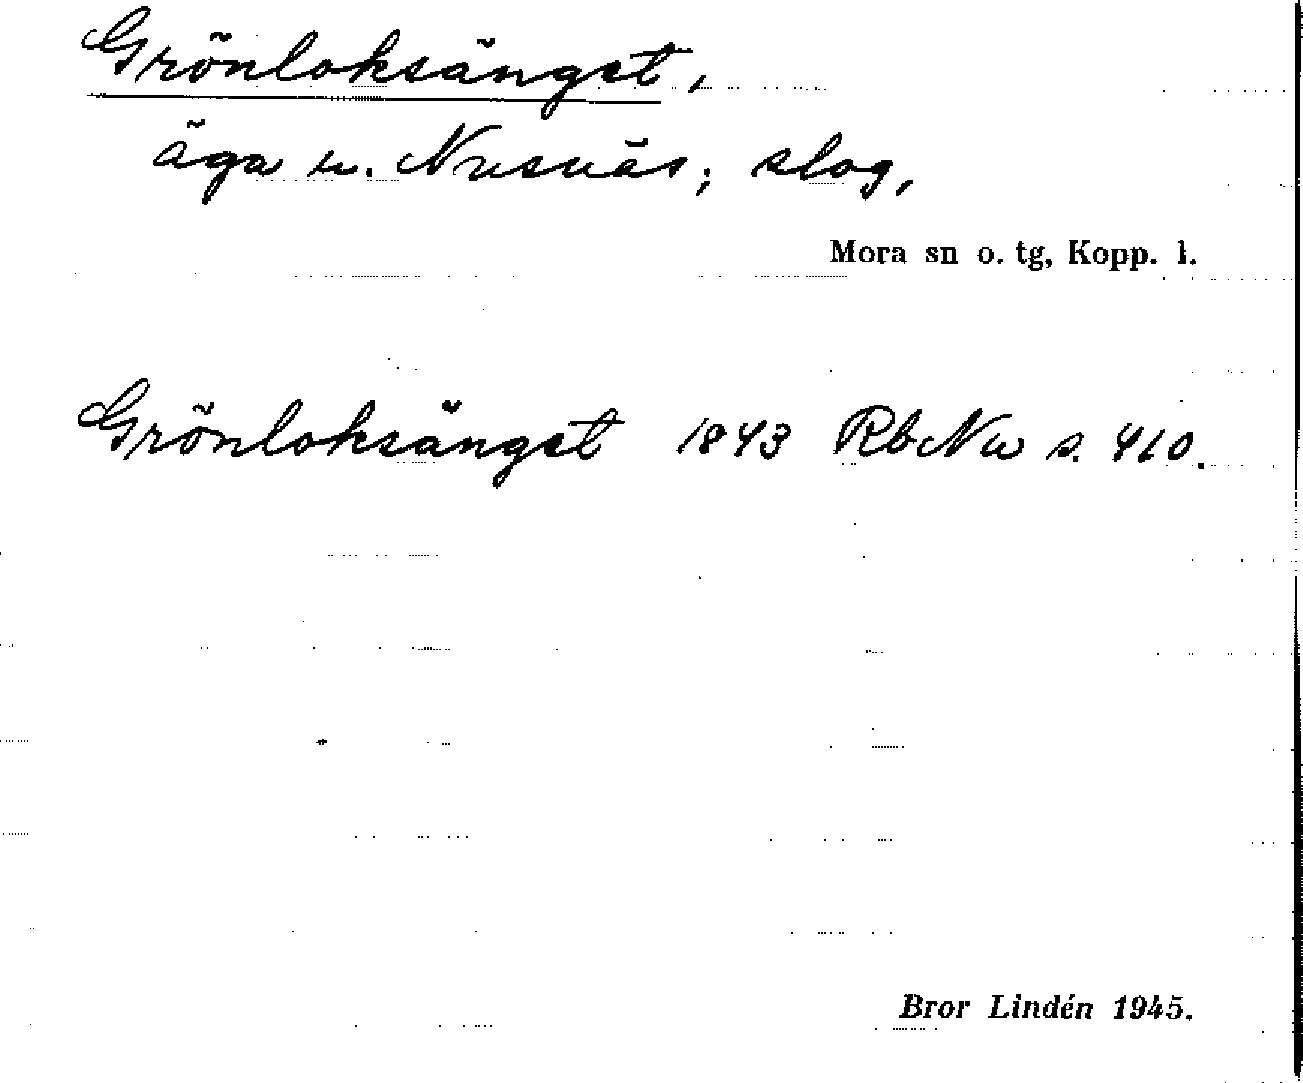 Grönloksänget,
äga u. Nusnäs; slog,
Mora sn o. tg, Kopp. l.
Grönloksänget 1843 RbNu s. 410.
Bror Lindén 1945.